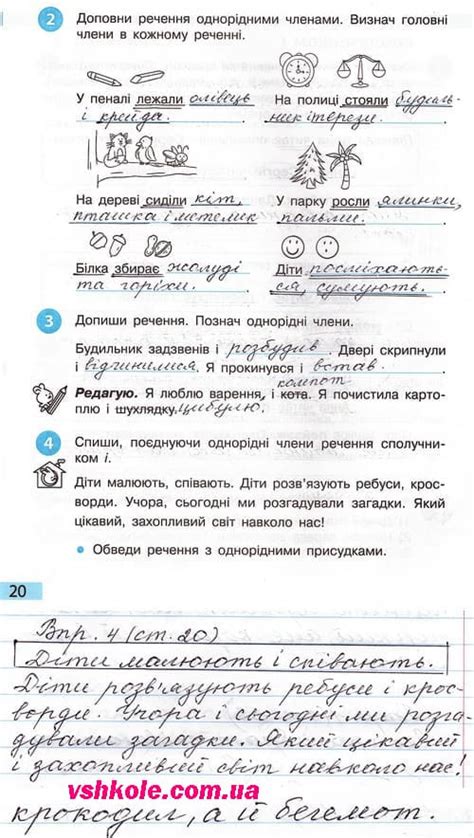 2 Доповни речення однорідними членами. Визнач головні
члени в кожному реченні.
У пеналі лежали олівець
і крейда.
На полиці стояли будиль-
ник і терези.
На дереві сиділи кіт,
пташка і метелик
У парку росли ялинки,
пальми.
Білка збирає жолуді
та горіхи.
Діти посміхають-
ся, сумують.
3 Допиши речення. Познач однорідні члени.
Будильник задзвенів і розбудив. Двері скрипнули
і відчинилися. Я прокинувся і встав.
компот.
Редагую. Я люблю варення, і кота. Я почистила карто-
плю і шухлядку. цибулю.
4 Спиши, поєднуючи однорідні члени речення сполучни-
ком і.
Діти малюють, співають. Діти розв'язують ребуси, крос-
ворди. Учора, сьогодні ми розгадували загадки. Який
цікавий, захопливий світ навколо нас!
• Обведи речення з однорідними присудками.
20
Впр. 4 (ст. 20)
Діти малюють і співають.
Діти розв'язують ребуси і крос-
ворди. Учора і сьогодні ми розга-
дували загадки. Який цікавий
і захопливий світ навколо нас!
vshkole.com.ua
крокодил, а й бегемот.